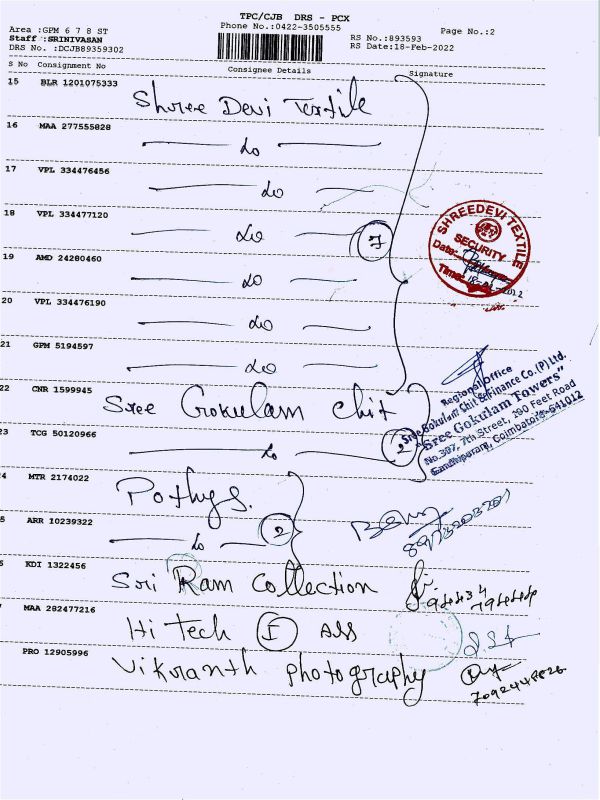 TPC/CJB DRS - PCX
Area :GPM 6 7 8 ST Phone No.:0422-3505555 Page No.:2
Staff :SRINIVASAN RS No.:893593
DRS No. :DCJB89359302 RS Date:18-Feb-2022
S No Consignment No Consignee Details Signature
15 BLR 1201075333 Shree Devi Textile
16 MAA 277555828 — do —
17 VPL 334476456 — do —
18 VPL 334477120 — do — 7
SHREEDEVI TEXTILE
SECURITY
Date:
Time:
19 AMD 24280460 — do —
20 VPL 334476190 — do —
21 GPM 5194597 — do —
22 CNR 1599945 Sree Gokulam chit
Regional office
Sree Gokulam Chit & Finance Co.(P) Ltd.
"Sree Gokulam Towers"
No.397, 7th Street, 290 Feet Road
Gandhipuram, Coimbatore-641012
23 TCG 50120966 — do — 2
4 MTR 2174022 Pothys.
5 ARR 10239322 — do — 2
6 KDI 1322456 Sri Ram Collection
7 MAA 282477216 Hi Tech I ASS
PRO 12905996 Vikranth photography